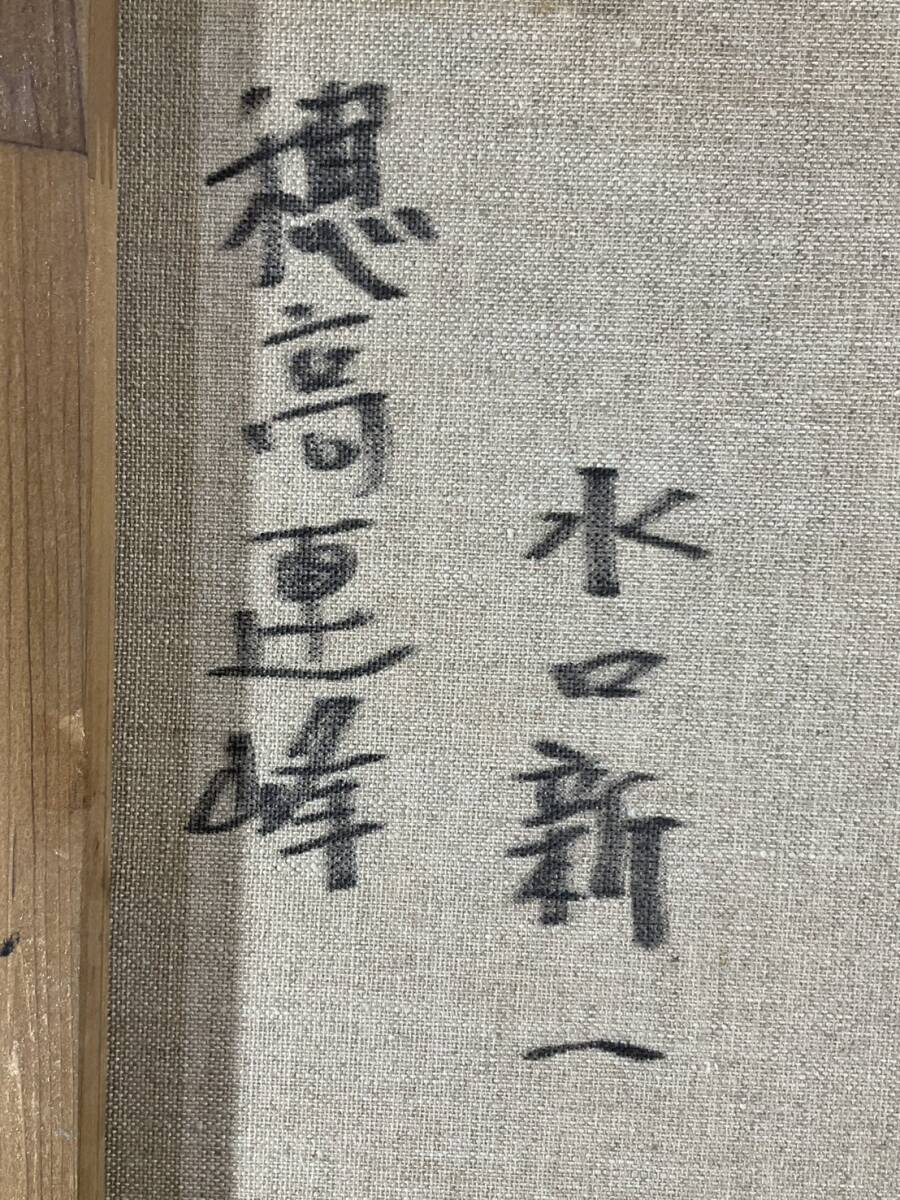 水口新一
穂高連峰